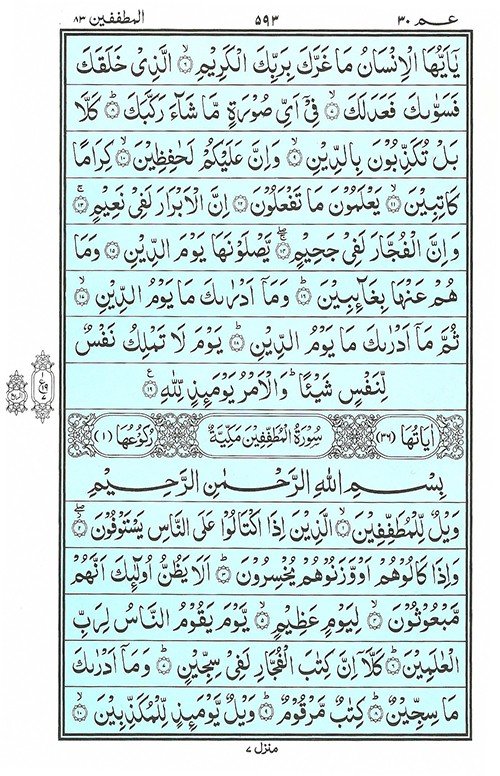 عم ٣٠ ٥٩٣ المطففين ٨٣
يٰۤاَيُّهَا الْاِنْسَانُ مَا غَرَّكَ بِرَبِّكَ الْكَرِيْمِ ۙ‏﴿۶﴾ الَّذِىْ خَلَقَكَ
فَسَوّٰىكَ فَعَدَلَكَ ۙ‏﴿۷﴾ فِىْۤ اَىِّ صُوْرَةٍ مَّا شَآءَ رَكَّبَكَ ؕ‏﴿۸﴾ كَلَّا
بَلْ تُكَذِّبُوْنَ بِالدِّيْنِ ۙ‏﴿۹﴾ وَاِنَّ عَلَيْكُمْ لَحٰفِظِيْنَ ۙ‏﴿۱۰﴾ كِرَامًا
كَاتِبِيْنَ ۙ‏﴿۱۱﴾ يَعْلَمُوْنَ مَا تَفْعَلُوْنَ ‏﴿۱۲﴾ اِنَّ الْاَبْرَارَ لَفِىْ نَعِيْمٍ ۚ‏﴿۱۳﴾
وَاِنَّ الْفُجَّارَ لَفِىْ جَحِيْمٍ ۚۖ‏﴿۱۴﴾ يَّصْلَوْنَهَا يَوْمَ الدِّيْنِ ‏﴿۱۵﴾ وَمَا
هُمْ عَنْهَا بِغَآئِبِيْنَ ؕ‏﴿۱۶﴾ وَمَاۤ اَدْرٰىكَ مَا يَوْمُ الدِّيْنِ ۙ‏﴿۱۷﴾
ثُمَّ مَاۤ اَدْرٰىكَ مَا يَوْمُ الدِّيْنِ ؕ‏﴿۱۸﴾ يَوْمَ لَا تَمْلِكُ نَفْسٌ
لِّنَفْسٍ شَيْـًٔا ؕ وَالْاَمْرُ يَوْمَئِذٍ لِّلّٰهِ ‏﴿۱۹﴾
اٰيَاتُهَا (٣٦) سُوْرَةُ الْمُطَفِّفِيْنَ مَكِّيَّةٌ رُكُوْعُهَا (١)
بِسْمِ اللّٰهِ الرَّحْمٰنِ الرَّحِيْمِ
وَيْلٌ لِّلْمُطَفِّفِيْنَ ۙ‏﴿۱﴾ الَّذِيْنَ اِذَا اكْتَالُوْا عَلَى النَّاسِ يَسْتَوْفُوْنَ ۖ‏﴿۲﴾
وَاِذَا كَالُوْهُمْ اَوْ وَّزَنُوْهُمْ يُخْسِرُوْنَ ؕ‏﴿۳﴾ اَلَا يَظُنُّ اُولٰٓئِكَ اَنَّهُمْ
مَّبْعُوْثُوْنَ ۙ‏﴿۴﴾ لِيَوْمٍ عَظِيْمٍ ۙ‏﴿۵﴾ يَّوْمَ يَقُوْمُ النَّاسُ لِرَبِّ
الْعٰلَمِيْنَ ؕ‏﴿۶﴾ كَلَّاۤ اِنَّ كِتٰبَ الْفُجَّارِ لَفِىْ سِجِّيْنٍ ؕ‏﴿۷﴾ وَمَاۤ اَدْرٰىكَ
مَا سِجِّيْنٌ ؕ‏﴿۸﴾ كِتٰبٌ مَّرْقُوْمٌ ؕ‏﴿۹﴾ وَيْلٌ يَّوْمَئِذٍ لِّلْمُكَذِّبِيْنَ ۙ‏﴿۱۰﴾
منزل ٧